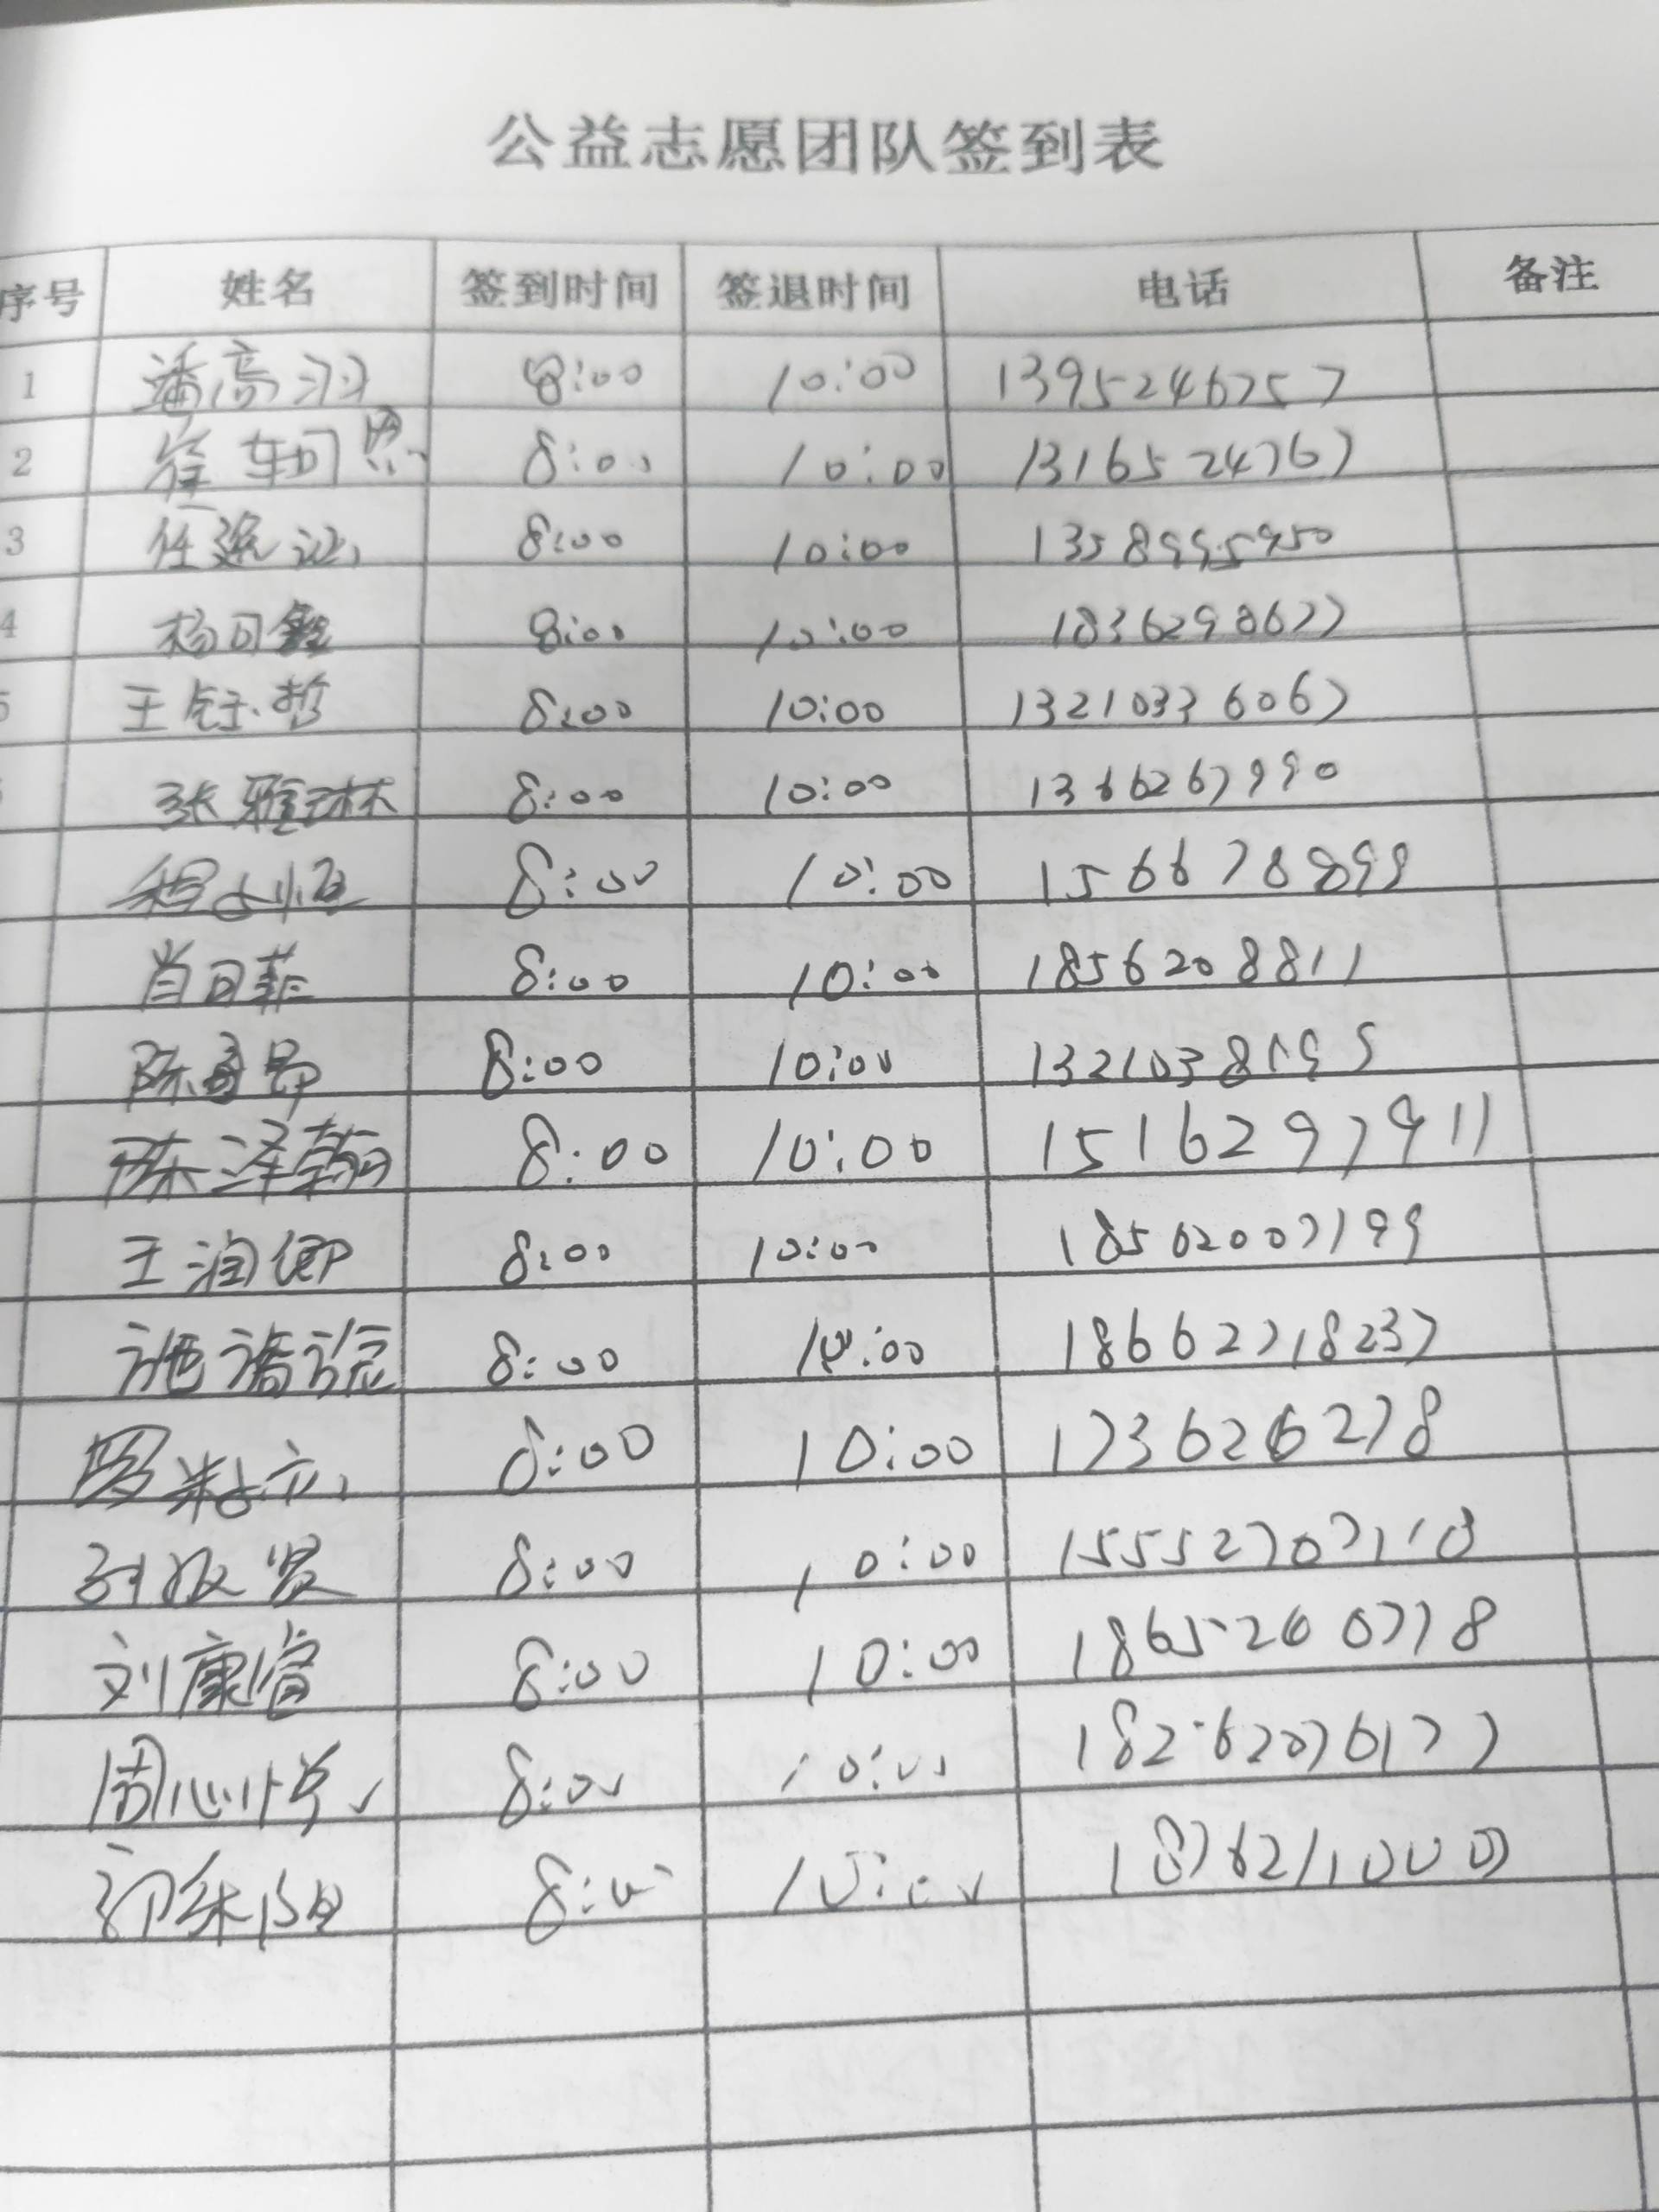 公益志愿团队签到表
序号 姓名 签到时间 签退时间 电话 备注
1 潘高羽 8:00 10:00 1395246757
2 崔轲恩 8:00 10:00 1316524767
3 任逸 8:00 10:00
4 杨可鑫 8:00 10:00 18362980677
5 王钰哲 8:00 10:00 13210336067
张雅琳 8:00 10:00 1366267990
程 恒 8:00 10:00 1566678899
肖可菲 8:00 10:00 1856208811
陈 昂 8:00 10:00 1321038195
陈泽翰 8:00 10:00 1516297911
王润卿 8:00 10:00 18502007199
施 谊 8:00 10:00 18662718237
罗 8:00 10:00 1736266278
8:00 10:00
刘康 8:00 10:00 18652600778
周心 8:00 10:00
8:00 10:00